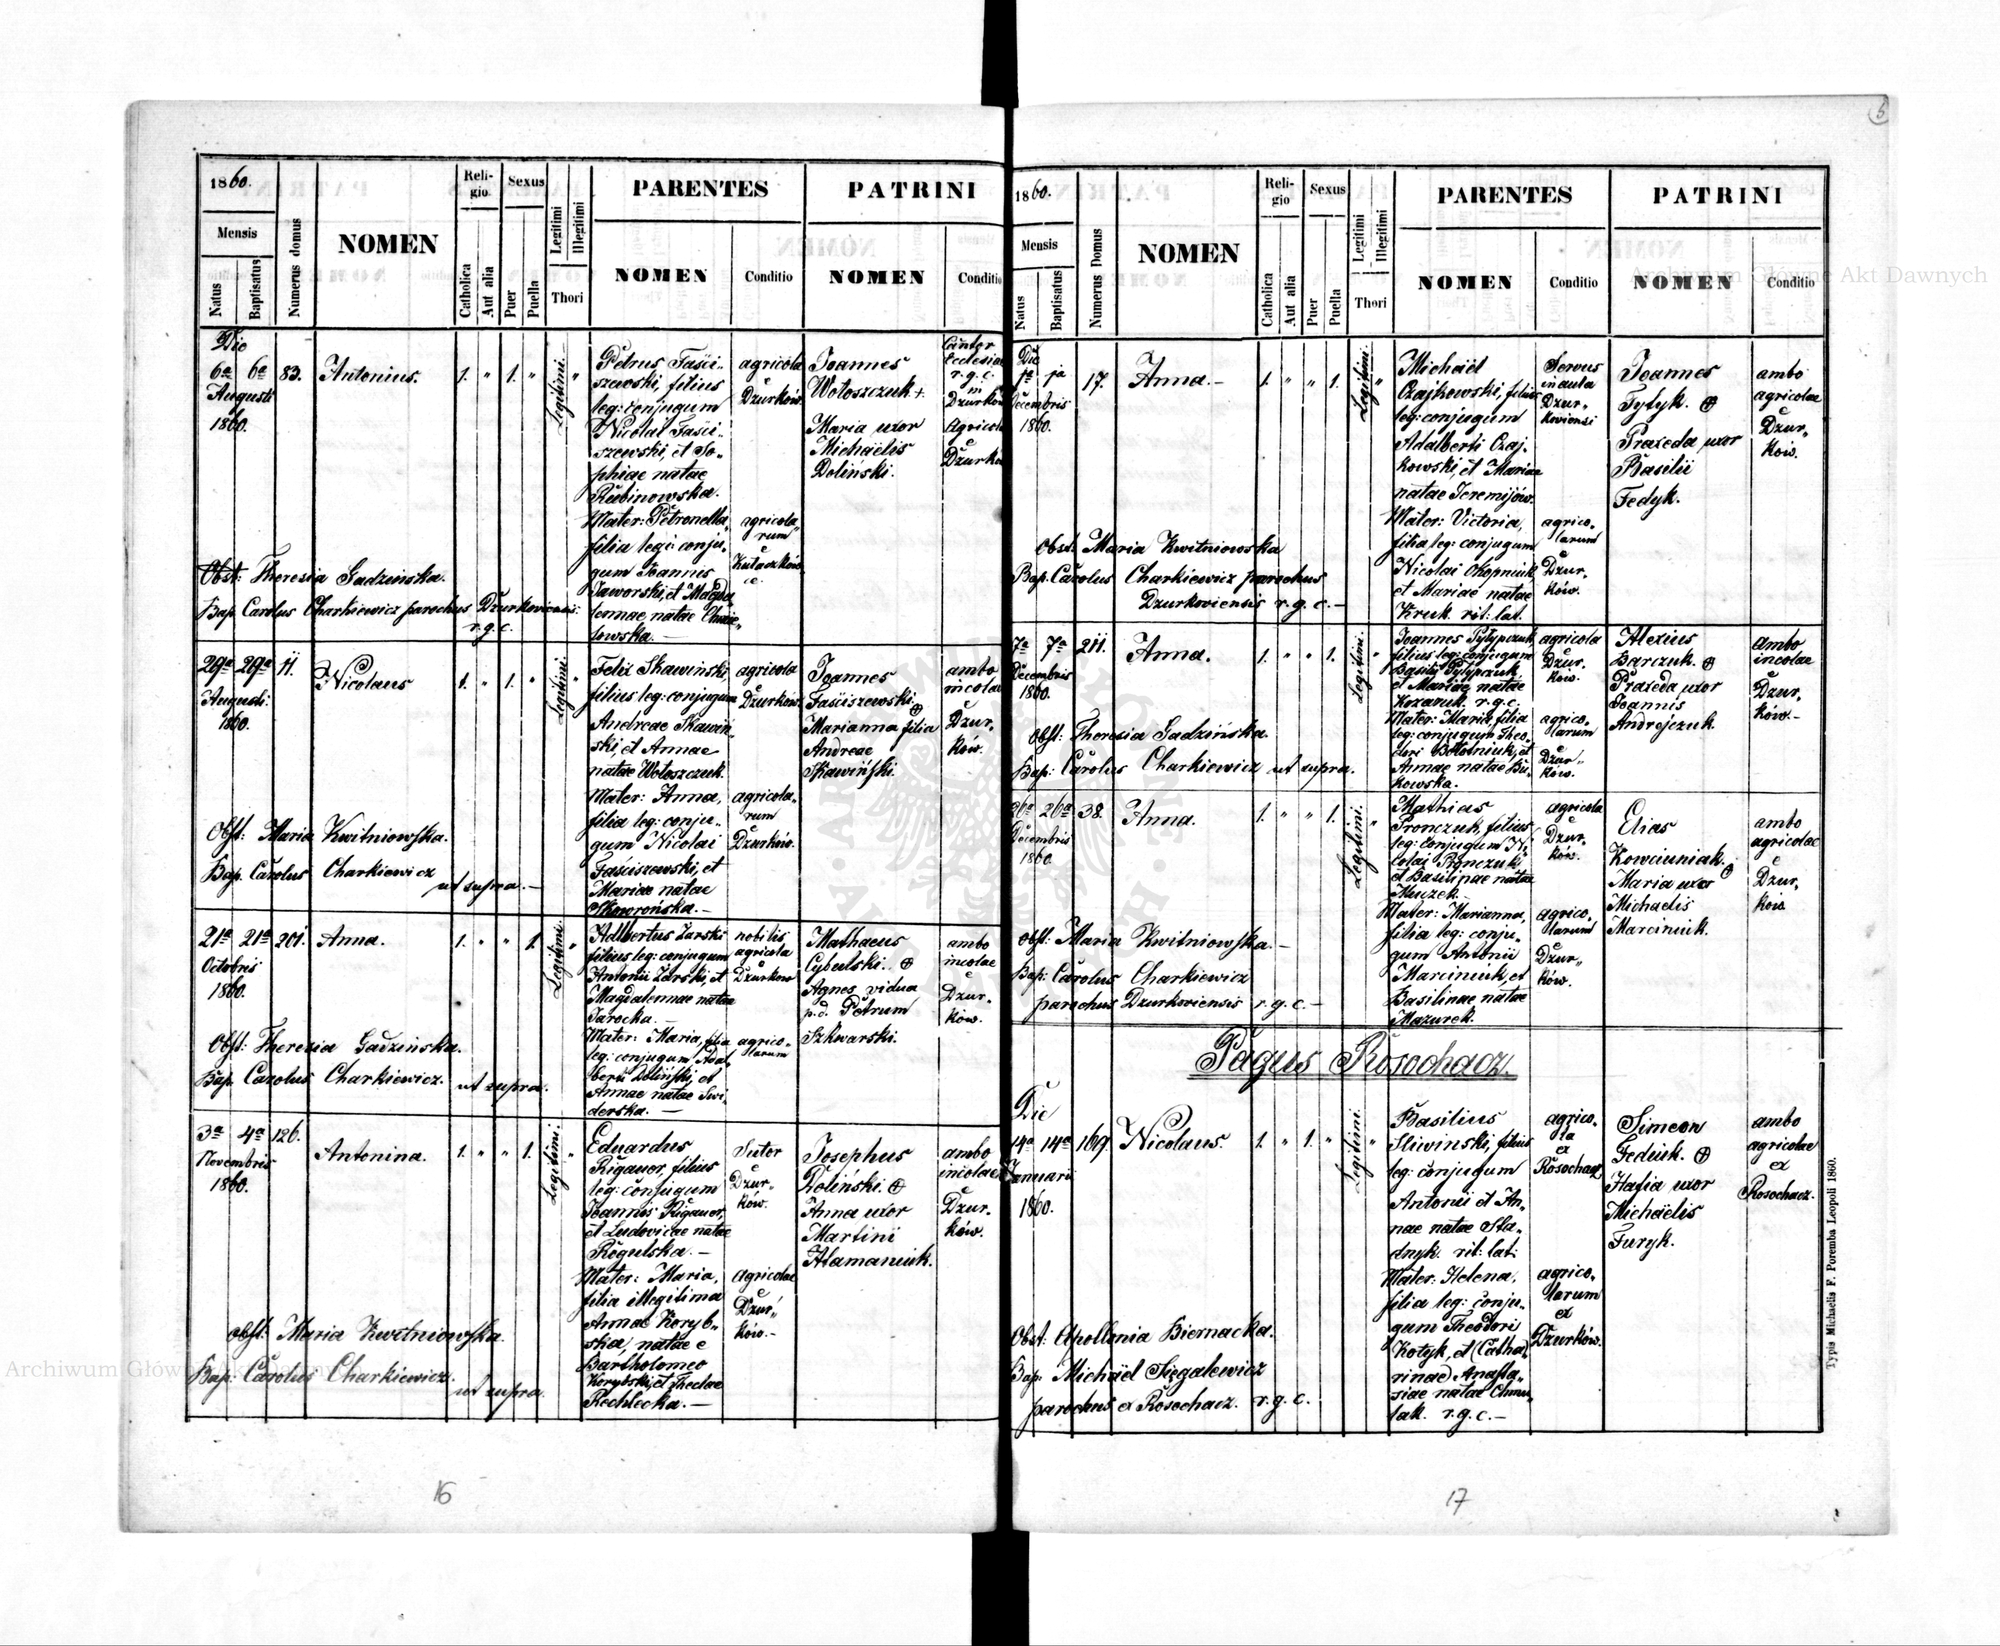 1860.
Mensis
Natus
Baptisatus
Numerus domus
NOMEN
Reli-
gio
Catholica
Aut alia
Sexus
Puer
Puella
Legitimi
Illegitimi
Thori
PARENTES
NOMEN
Conditio
PATRINI
NOMEN
Conditio
Die
6a 6a 83. Antonius. 1. " 1. " Legitimi. "
Augusti
1860.
Petrus Faści-
szewski, filius
leg: conjugum
Nicolai Faści-
szewski, et So-
phiae natae
Rubinowska.
Mater: Petronella,
filia legi: conju-
gum Joannis
Jaworski, et Magda-
lennae natae
agricola
Dzurków.
agricola-
rum
Joannes
Wołoszczuk +
Maria uxor
Michaëlis
Doliński.
Cantor
Ecclesiae
r. g. c.
in
Dzurków
Agricola
Obst: Theresia Gadzinska.
Bap. Carolus Charkiewicz parochus Dzurkoviensis
r. g. c.
29a 29a 11. Nicolaus 1. " 1. " Legitimi. "
Augusti
1860.
Felix Skawiński,
filius leg: conjugum
Andreae Skawiń-
ski, et Annae
natae Wołoszczuk.
Mater: Anna,
filia leg: conju-
gum Nicolai
Faściszewski, et
Mariae natae
Skowrońska. —
agricola
Dzurków.
agricola-
rum
Dzurków.
Joannes
Faściszewski.
Marianna filia
Andreae
Skawiński.
ambo
incolae
Dzur-
ków.
Obst: Maria Kwitniowska.
Bap. Carolus Charkiewicz
ut supra. —
21a 21a 201. Anna. 1. " " 1. Legitimi. "
Octobris
1860.
Adlbertus Zarski
filius leg: conjugum
Antonii Zarski, et
Magdalennae natae
Jarocka. —
Mater: Maria, filia
leg: conjugum Adal-
berti Doliński, et
Annae natae Swi-
derska. —
nobilis
agricola
Dzurkow
agrico-
larum
Mathaeus
Cybulski.
Agnes vidua
p. d. Petrum
Szkwarski.
ambo
incolae
Dzur-
ków.
Obst: Theresia Gadzinska.
Bap. Carolus Charkiewicz. ut supra.
3a 4a 126. Antonina. 1. " " 1. Legitimi. "
Novembris
1860.
Eduardus
Rigauer, filius
leg: conjugum
Joannis Rigauer,
et Ludovicae natae
Rogulska. —
Mater: Maria,
filia illegitima
Annae Koryb-
ska, natae e
Bartholomeo
Korybski, et Theclae
Rechlecka. —
Sutor
Dzur-
ków.
Agricolae
Dzur-
ków. —
Josephus
Doliński.
Anna uxor
Martini
Atamaniuk.
ambo
incolae
Dzur-
ków.
obst: Maria Kwitniowska.
Bap: Carolus Charkiewicz. ut supra.
16
5
1860.
Mensis
Natus
Baptisatus
Numerus Domus
NOMEN
Reli-
gio
Catholica
Aut alia
Sexus
Puer
Puella
Legitimi
Illegitimi
Thori
PARENTES
NOMEN
Conditio
PATRINI
NOMEN
Conditio
Die
1a 1a 17. Anna. — 1. " " 1. Legitimi. "
Decembris
1860.
Michaël
Czajkowski, filius
leg: conjugum
Adalberti Czaj-
kowski, et Mariae
natae Jeremijów.
Mater: Victoria,
filia leg: conjugum
Nicolai Okopniuk
et Mariae natae
Kruk. rit: lat.
Servus
Dzur-
koviensi
agrico-
larum
Dzur-
ków.
Joannes
Tytyk.
Praxeda uxor
Basilii
Fedyk.
ambo
agricolae
Dzur-
ków.
Obst: Maria Kwitniowska
Bap. Carolus Charkiewicz parochus
Dzurkoviensis r. g. c. —
7a 7a 211. Anna. 1. " " 1. Legitimi. "
Decembris
1860.
Joannes Pyłypczuk,
filius leg: conjugum
Basilii Pyłypczuk,
et Mariae natae
Kozaruk. r. g. c.
Mater: Maria, filia
leg: conjugum Theo-
dori Bołotniuk, et
Annae natae Bu-
kowska.
agricola
Dzur-
ków.
agrico-
larum
Dzur-
ków.
Alexius
Barczuk.
Praxeda uxor
Joannis
Andrejczuk.
ambo
incolae
Dzur-
ków. —
Obst: Theresia Gadzińska.
Bap: Carolus Charkiewicz ut supra.
26a 26a 38. Anna. 1. " " 1. Legitimi. "
Decembris
1860.
Mathias
Pronczuk, filius
leg: conjugum Ni-
colai Pronczuk
et Basilinae natae
Mater: Marianna,
filia leg: conju-
gum Antonii
Marciniuk, et
Basilinae natae
Mazurek.
agricola
Dzur-
ków.
agrico-
larum
Dzur-
ków.
Elias
Kowciuniak.
Maria uxor
Michaelis
Marciniuk.
ambo
agricolae
Dzur-
ków
obst: Maria Kwitniowska. —
Bap: Carolus Charkiewicz
parochus Dzurkoviensis r. g. c. —
Pagus Rosochacz
Die
14a 14a 169. Nicolaus. 1. " 1. " Legitimi. "
Januarii
1860.
Basilius
Sliwinski, filius
leg: conjugum
Antonii et An-
nae natae Sta-
dnyk. rit: lat:
Mater: Helena,
filia leg: conju-
gum Theodori
Kotyk, et (Catha-
rinae) Anasta-
siae natae Chmu-
lak. r. g. c. —
agrico-
la
ex
Rosochacz
agrico-
larum
ex
Dzurków.
Simeon
Fediuk.
Hafia uxor
Michaëlis
Furyk.
ambo
agricolae
ex
Rosochacz.
Obst: Apollonia Biernacka.
Bap. Michaël Sięgalewicz
parochus ex Rosochacz. r. g. c.
Typis Michaelis F. Poremba Leopoli 1860.
17
Archiwum Główne Akt Dawnych
Archiwum Główne Akt Dawnych